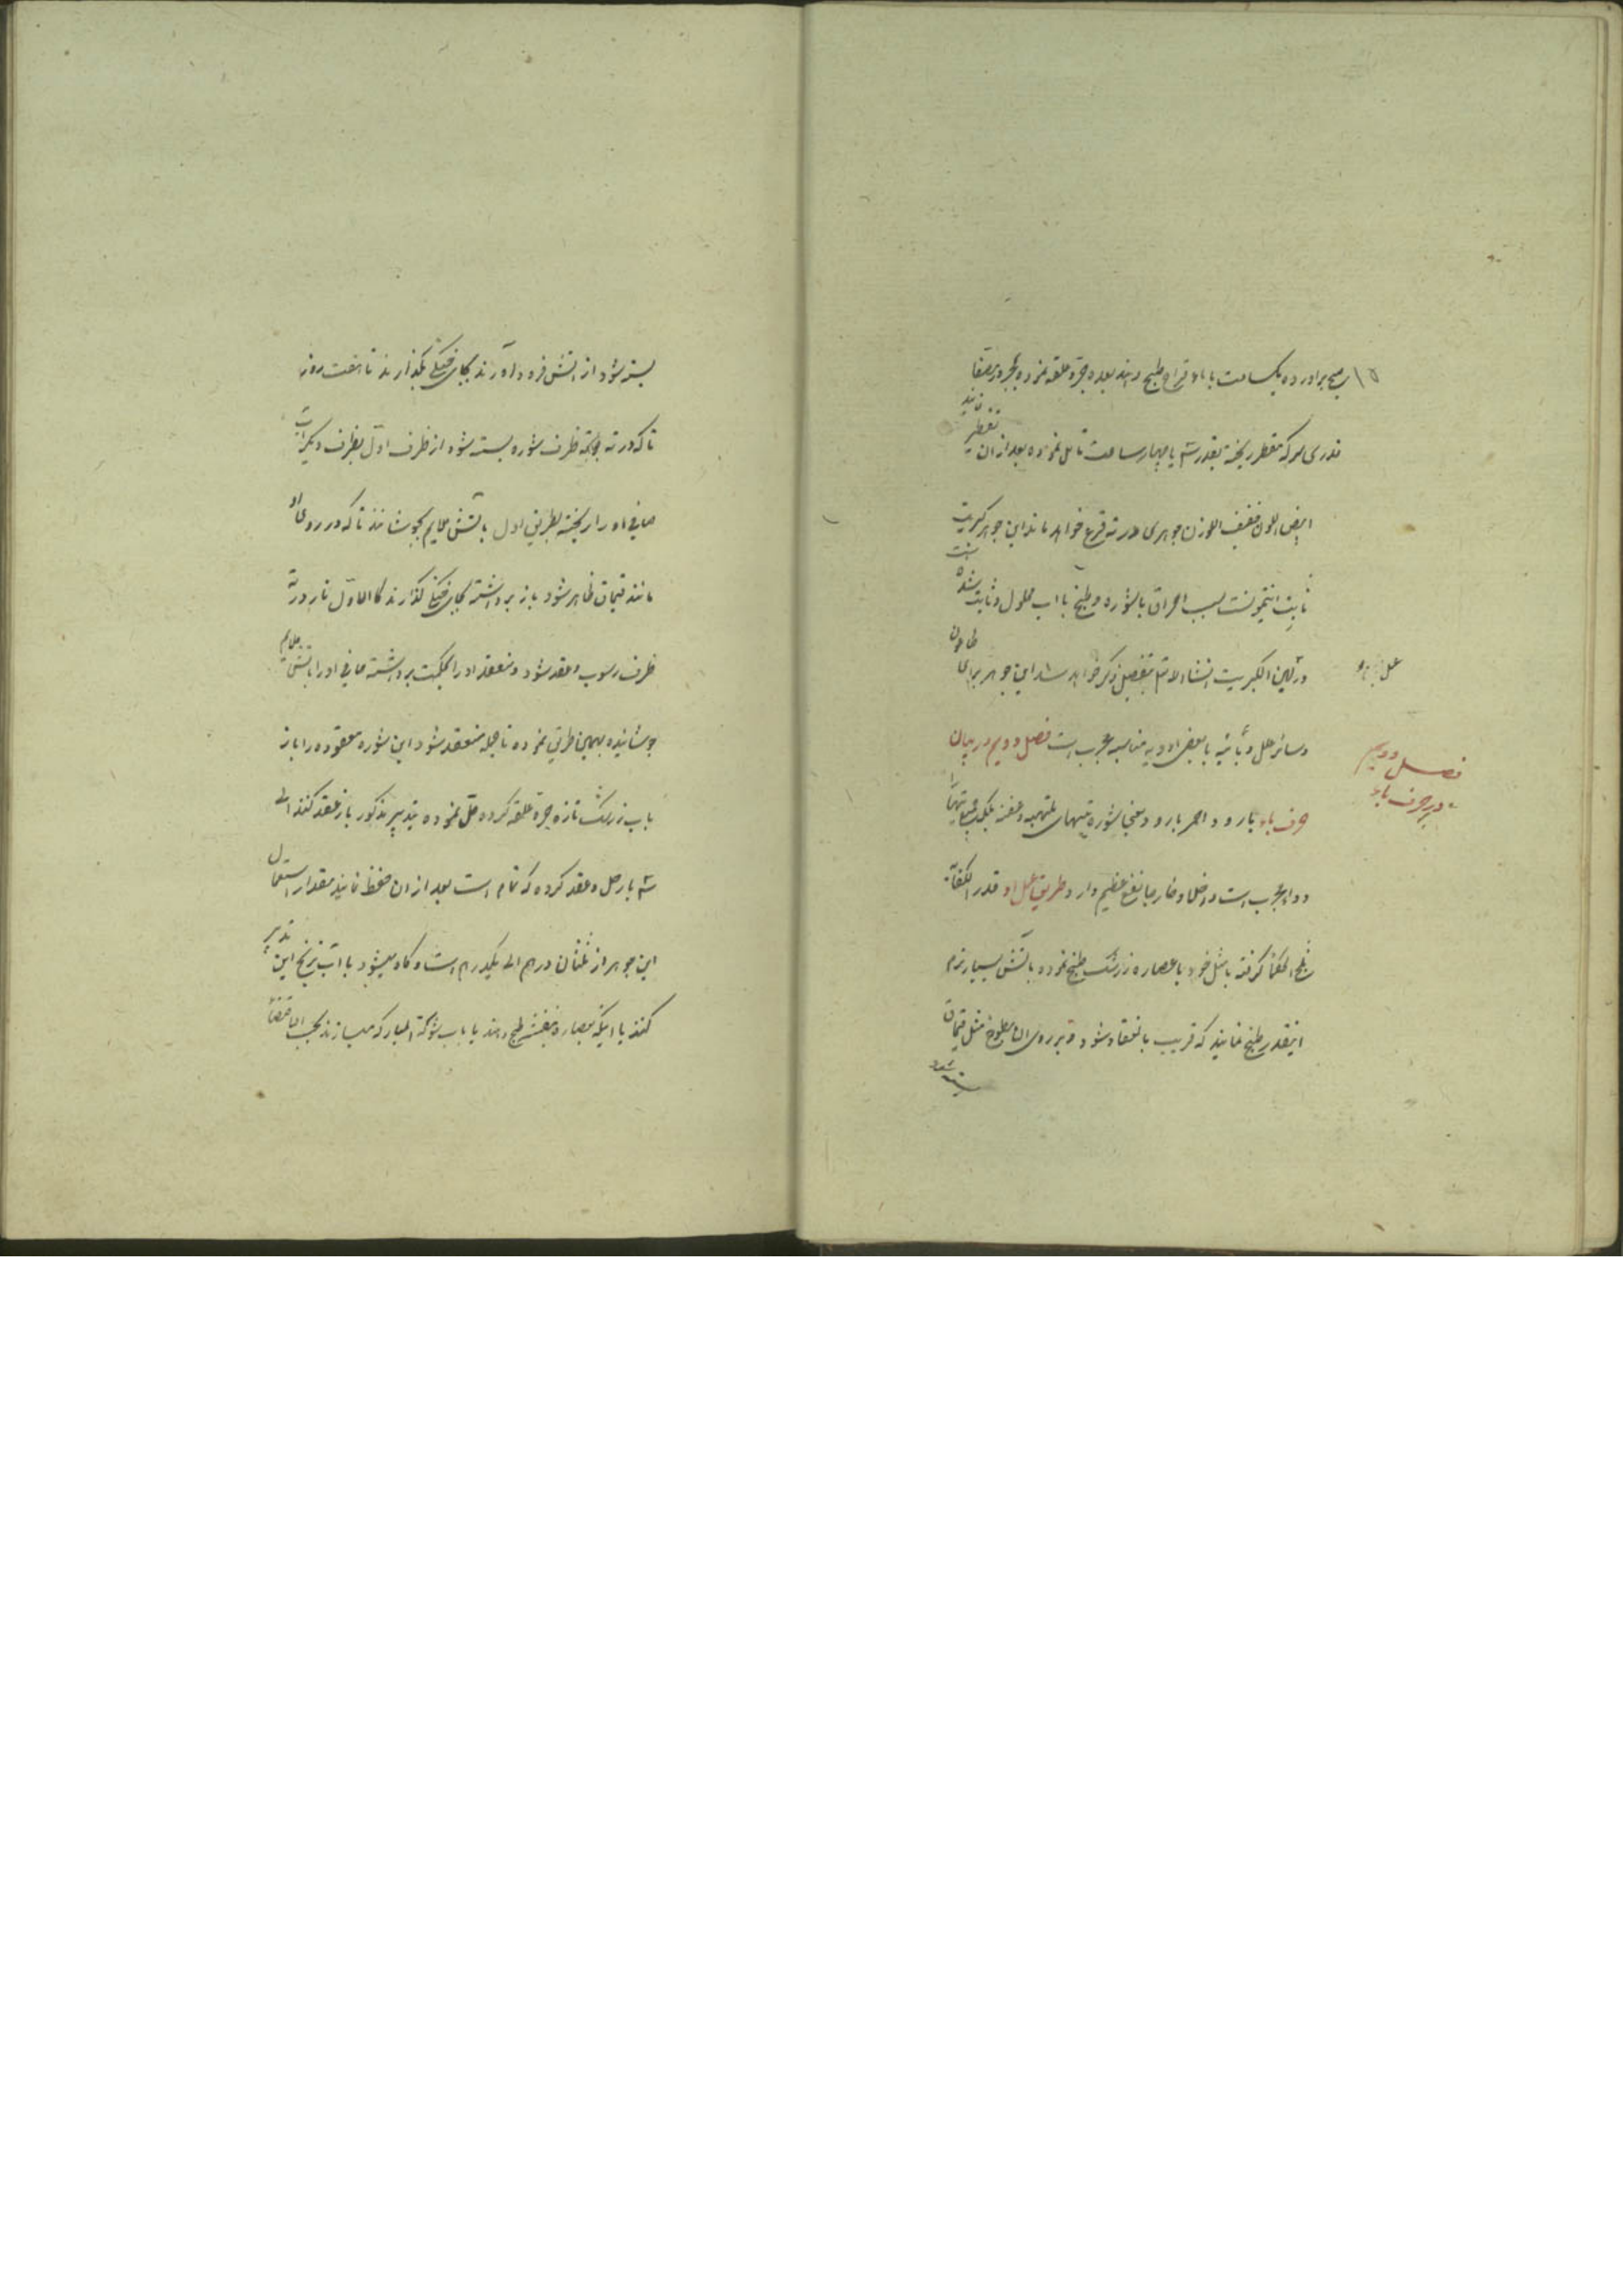 صبح براورده یکساعت با ماء قراح طبخ دهند بعده جره علقه نموده
نمایند
قدری سرکه مقطر ریخته بقدر سه یا چهار ساعت تامل نموده بعد از ان تقطیر
ابیض اللون خفیف الوزن جوهری در ته قرع خواهد ماند این جوهر کبریت
ثابت انتیمونست بسبب احراق با شوره و طبخ با اب محلول و ثابت شده است
در تلیین الکبریت انشاءالله تم بتفصیل ذکر خواهد شد این جوهر برای طاعون
و سائر علل وبائیه با بعض ادویه مناسبه مجرب است فصل دویم در بیان
فصل دویم
در حرف باء
حرف باء بارود احمر بارود یعنی شوره تبهای ملتهبه و عفنه بلکه جمیع تبها را
دواء مجرب است داخلا و خارجا نفع عظیم دارد طریق عمل او قدر الکفایه
ملح گرفته با مثل خود با عصاره زرشک طبخ نموده باتش بسیار نرم
اینقدر طبخ نمایند که قریب بانعقاد شود و بر روی ان مطبوخ مثل قیماق
بسته شود
بسته شود از اتش فرود آورند بجای خنکی بگذارند تا هفت روز
تا که در ته ظرف شوره بسته شود از ظرف اول بظرف دیگر اب
صافی او را ریخته بطریق اول باتش ملایم بجوشانند تا که در روی او
مانند قیماق ظاهر شود باز برداشته بجای خنکی گذارند کالاول تا در ته
ظرف رسوب و عقد شود و منعقد او را بحکمت برداشته صافی او را باتش ملایم
جوشانیده بهمین طریق نموده تا جمله منعقد شود این شوره معقوده را باز
باب زرشک تازه جره علقه کرده حل نموده بتدبیر مذکور باز عقد کنند الی
سه بار حل و عقد کرده که تمام است بعد از ان حفظ نمایند مقدار استعمال
این جوهر از ثلثان درهم الی یکدرهم است و گاه میشود با اب نارنج این تدبیر
کنند یا اینکه بعصاره بنفشه طبخ دهند یا باب شوکة المبارکه میسازند بحسب اقتضا